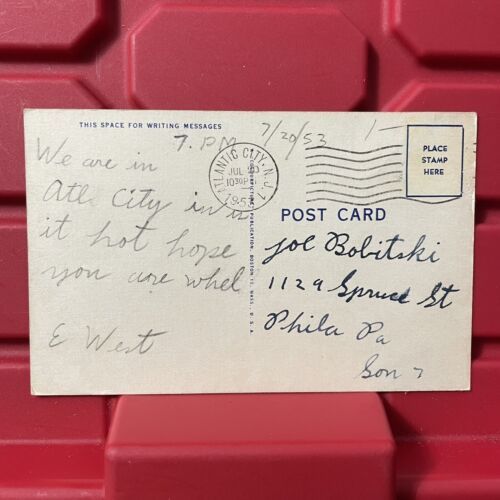 THIS SPACE FOR WRITING MESSAGES
7. PM 7/20/53 1-
We are in
Atl. City in is
it hot hope
you are whel
E West
ATLANTIC CITY, N.J.
JUL 20
1030PM
1953
PLACE
STAMP
HERE
POST CARD
Joe Bobitski
1129 Spruce St
Phila Pa